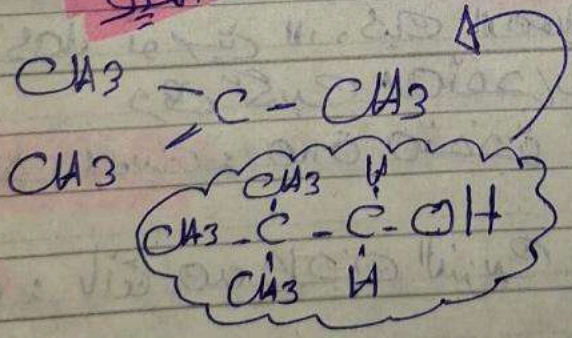 CH3
C - CH3
CH3
CH3 H
CH3 - C - C - OH
CH3 H